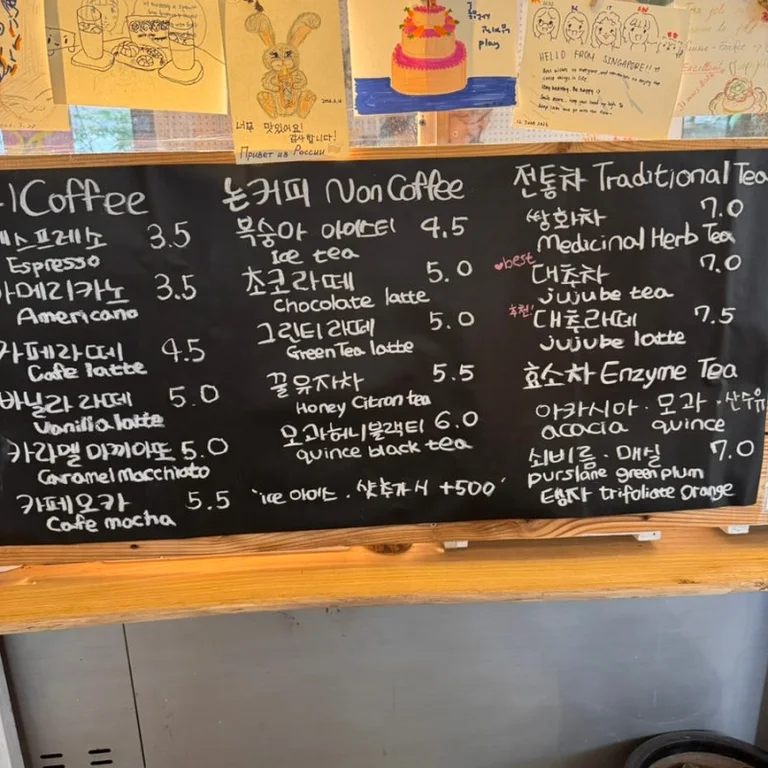 너무 맛있어요!
감사합니다!
Привет из России
HELLO FROM SINGAPORE!!
Coffee
에스프레소 3.5
Espresso
아메리카노 3.5
Americano
카페라떼 4.5
Cafe latte
바닐라 라떼 5.0
Vanilla latte
카라멜 마끼아또 5.0
Caramel Macchiato
카페모카 5.5
Cafe mocha
논커피 Non Coffee
복숭아 아이스티 4.5
Ice tea
초코라떼 5.0
Chocolate latte
그린티 라떼 5.0
Green Tea latte
꿀유자차 5.5
Honey Citron tea
모과허니블랙티 6.0
quince black tea
ice 아이스 . 샷추가시 +500
전통차 Traditional Tea
쌍화차 7.0
Medicinal Herb Tea
best
대추차 7.0
jujube tea
추천!
대추라떼 7.5
jujube latte
효소차 Enzyme Tea
아카시아 · 모과 · 산수유
acacia quince
쇠비름 · 매실 7.0
purslane green plum
탱자 trifoliate orange